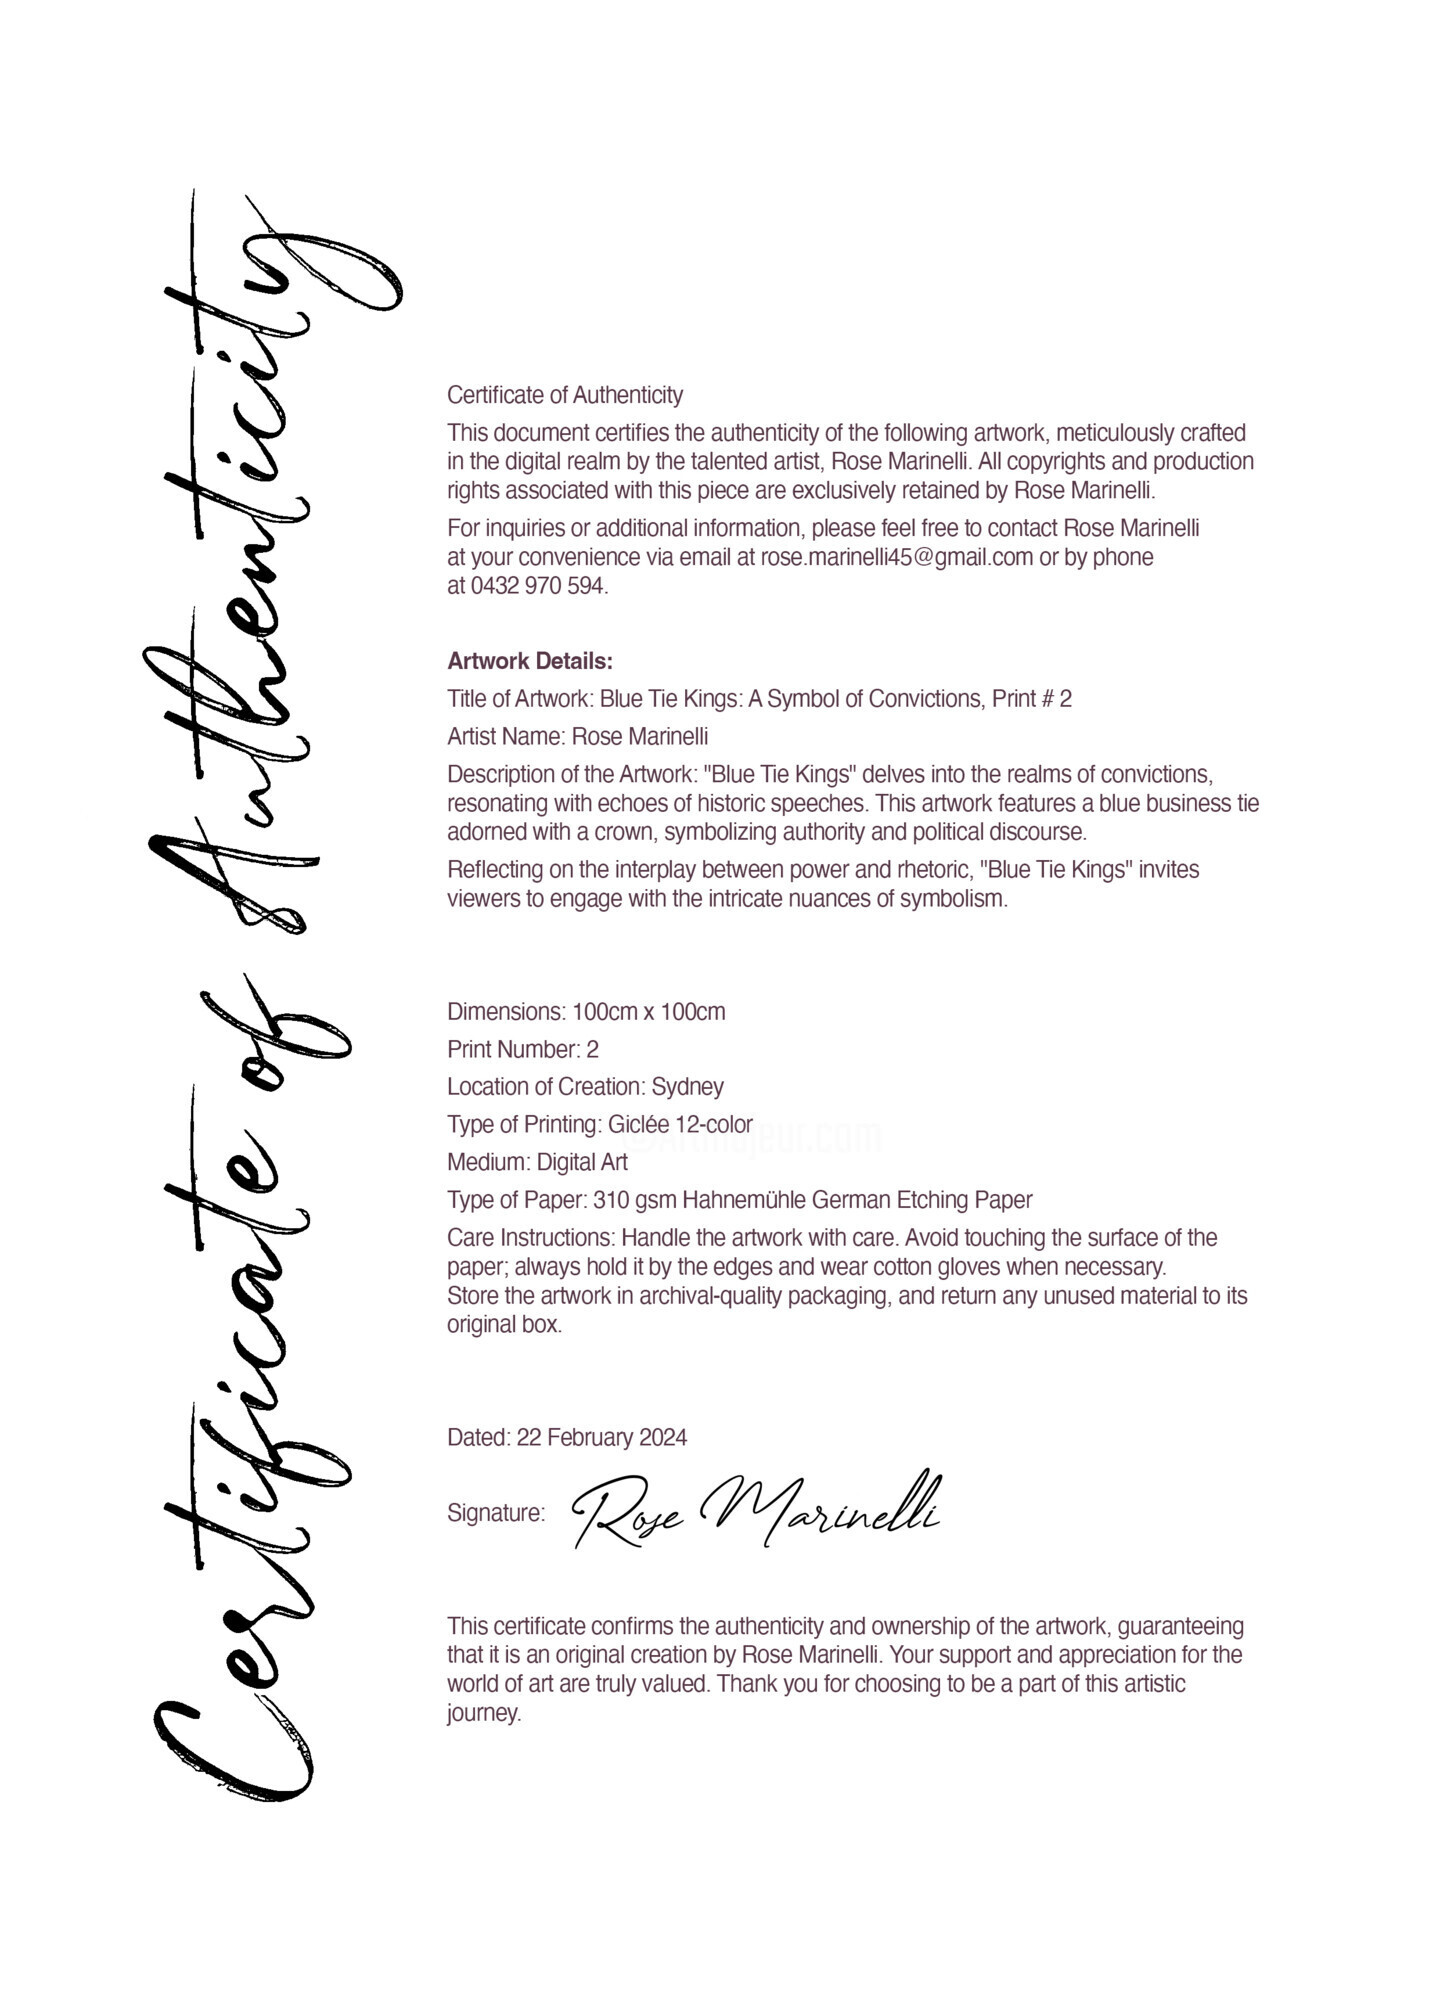 Certificate of Authenticity
Certificate of Authenticity
This document certifies the authenticity of the following artwork, meticulously crafted
in the digital realm by the talented artist, Rose Marinelli. All copyrights and production
rights associated with this piece are exclusively retained by Rose Marinelli.
For inquiries or additional information, please feel free to contact Rose Marinelli
at your convenience via email at rose.marinelli45@gmail.com or by phone
at 0432 970 594.
Artwork Details:
Title of Artwork: Blue Tie Kings: A Symbol of Convictions, Print # 2
Artist Name: Rose Marinelli
Description of the Artwork: "Blue Tie Kings" delves into the realms of convictions,
resonating with echoes of historic speeches. This artwork features a blue business tie
adorned with a crown, symbolizing authority and political discourse.
Reflecting on the interplay between power and rhetoric, "Blue Tie Kings" invites
viewers to engage with the intricate nuances of symbolism.
Dimensions: 100cm x 100cm
Print Number: 2
Location of Creation: Sydney
Type of Printing: Giclée 12-color
©Artmajeur.com
Medium: Digital Art
Type of Paper: 310 gsm Hahnemühle German Etching Paper
Care Instructions: Handle the artwork with care. Avoid touching the surface of the
paper; always hold it by the edges and wear cotton gloves when necessary.
Store the artwork in archival-quality packaging, and return any unused material to its
original box.
Dated: 22 February 2024
Signature: Rose Marinelli
This certificate confirms the authenticity and ownership of the artwork, guaranteeing
that it is an original creation by Rose Marinelli. Your support and appreciation for the
world of art are truly valued. Thank you for choosing to be a part of this artistic
journey.